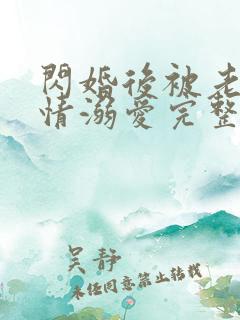 閃婚後被老
情溺愛完整
吴静
未经同意禁止转载